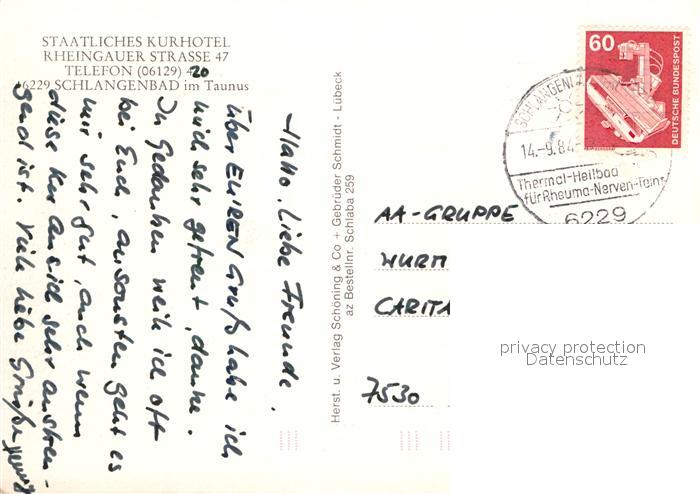 STAATLICHES KURHOTEL
RHEINGAUER STRASSE 47
TELEFON (06129) 4
20
6229 SCHLANGENBAD im Taunus
Hallo, Liebe Freunde,
über EUREN Gruß habe ich
mich sehr gefreut, danke.
In Gedanken weile ich oft
bei Euch, ansonsten geht es
mir sehr gut, auch wenn
diese Kur an sich sehr anstren-
gend ist. Viele liebe Grüße
Herst. u. Verlag Schöning & Co + Gebrüder Schmidt - Lübeck
az Bestellnr. Schlaba 259
60
DEUTSCHE BUNDESPOST
SCHLANGEN
14.-9.84
Thermal-Heilbad
für Rheuma-Nerven-Teint
6229
AA-GRUPPE
WURM
CARITA
7530
privacy protection
Datenschutz